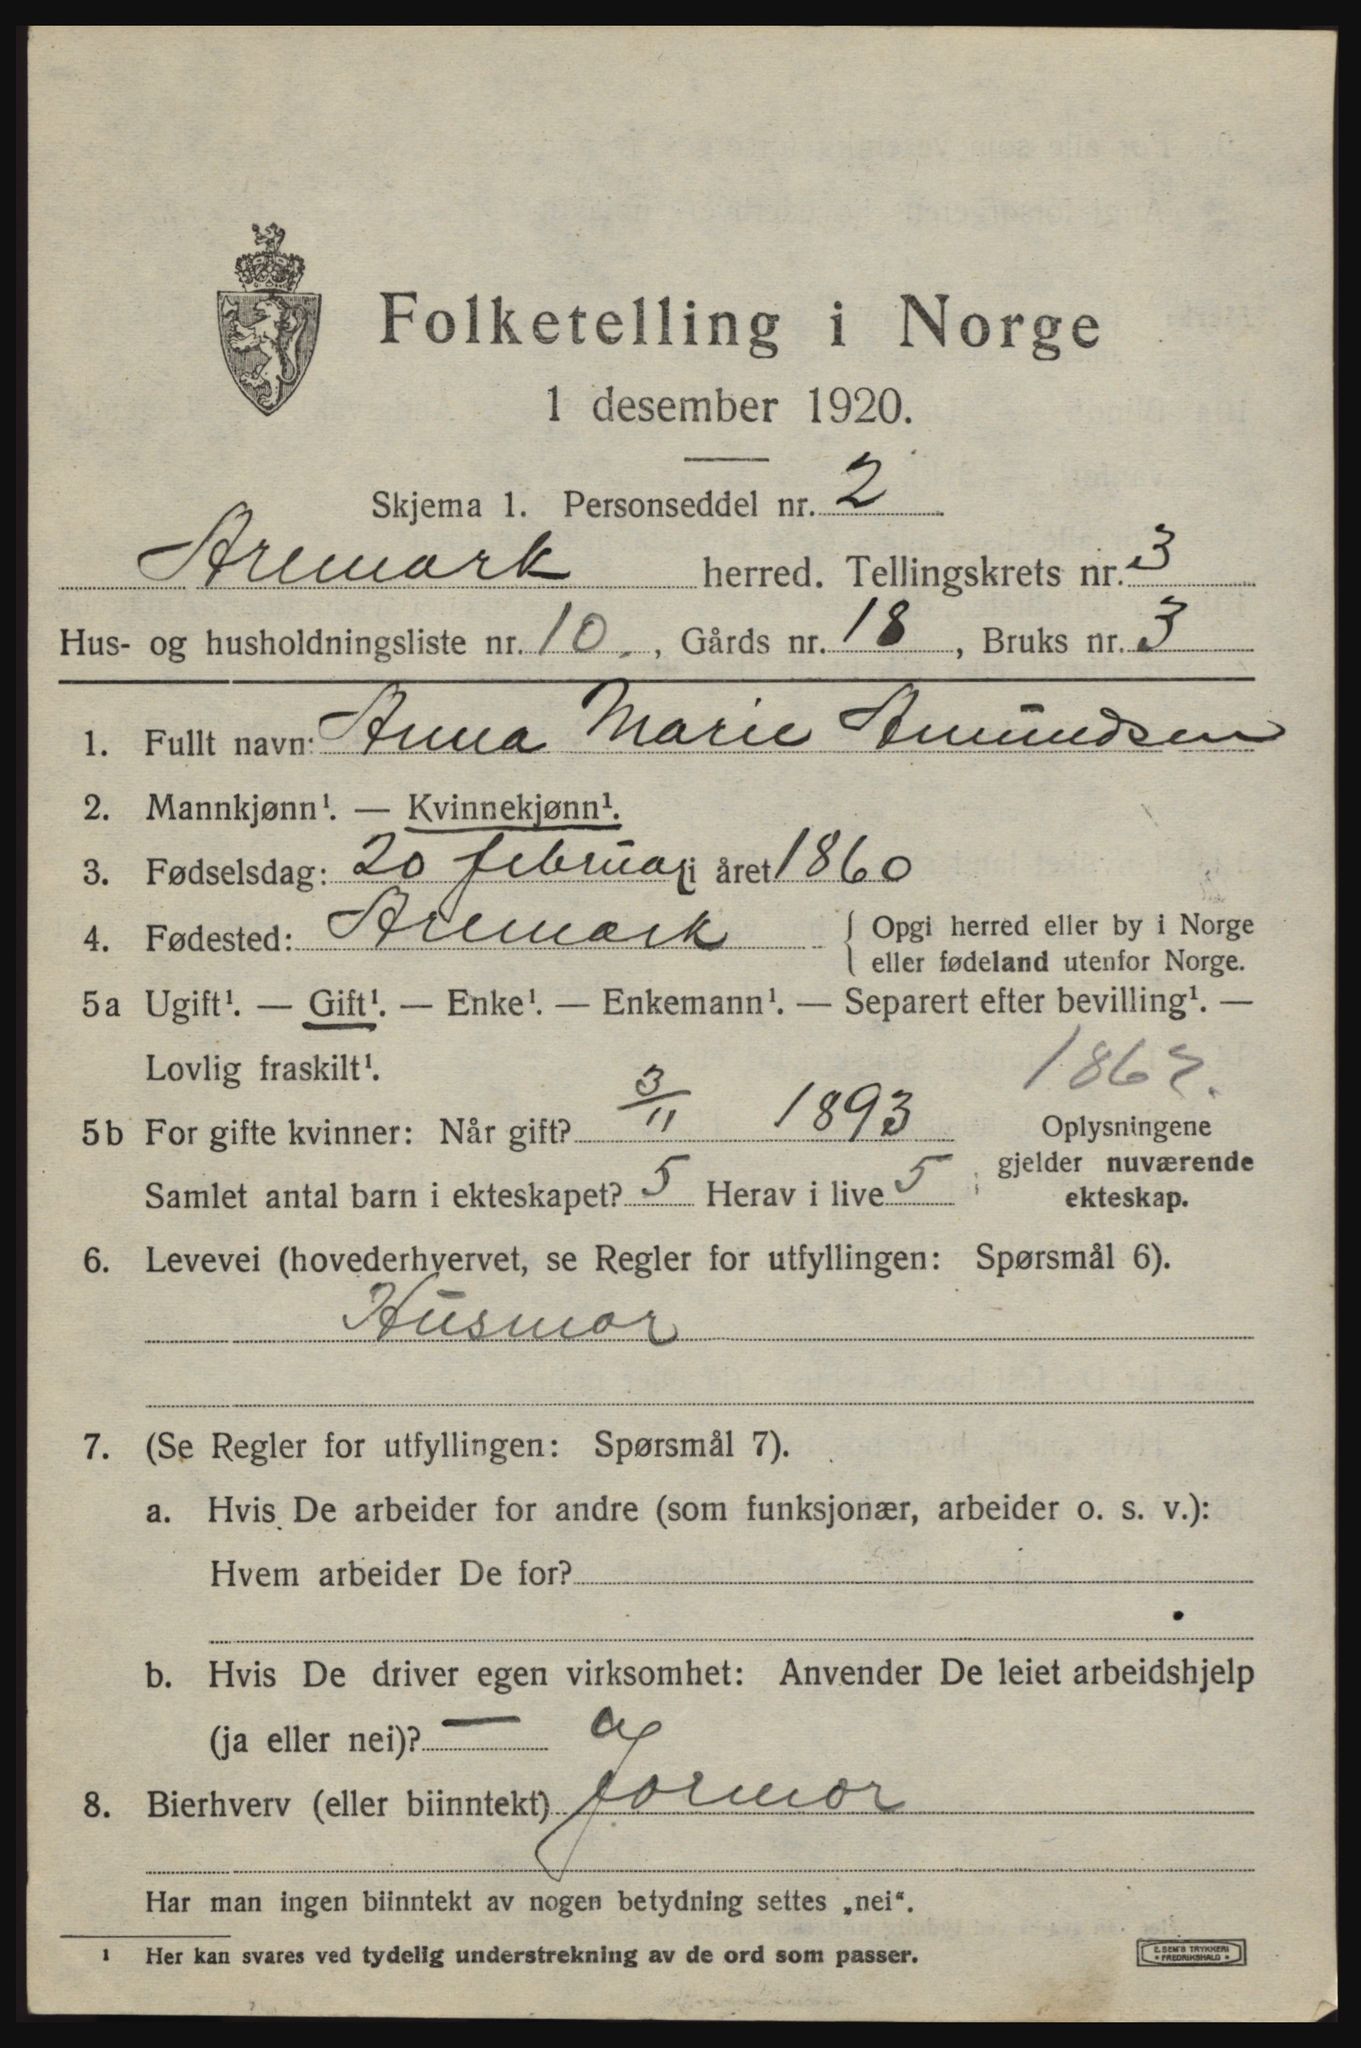 Folketelling i Norge
1 desember 1920.
Skjema 1. Personseddel nr. 2
Aremark herred. Tellingskrets nr. 3
Hus- og husholdningsliste nr. 10., Gårds nr. 18, Bruks nr. 3
1. Fullt navn: Anna Marie Amundsen
2. Mannkjønn¹. — Kvinnekjønn¹.
3. Fødselsdag: 20 februar i året 1860
4. Fødested: Aremark { Opgi herred eller by i Norge
eller fødeland utenfor Norge.
5a Ugift¹. — Gift¹. — Enke¹. — Enkemann¹. — Separert efter bevilling¹. —
Lovlig fraskilt¹.
5b For gifte kvinner: Når gift? 3/11 1893
Samlet antal barn i ekteskapet? 5 Herav i live 5
Oplysningene
gjelder nuværende
ekteskap.
6. Levevei (hovederhvervet, se Regler for utfyllingen: Spørsmål 6).
Husmor
7. (Se Regler for utfyllingen: Spørsmål 7).
a. Hvis De arbeider for andre (som funksjonær, arbeider o. s. v.):
Hvem arbeider De for?
b. Hvis De driver egen virksomhet: Anvender De leiet arbeidshjelp
(ja eller nei)? —
8. Bierhverv (eller biinntekt) Jormor
Har man ingen biinntekt av nogen betydning settes „nei“.
¹ Her kan svares ved tydelig understrekning av de ord som passer.
E. SEM'S TRYKKERI
• FREDRIKSHALD •